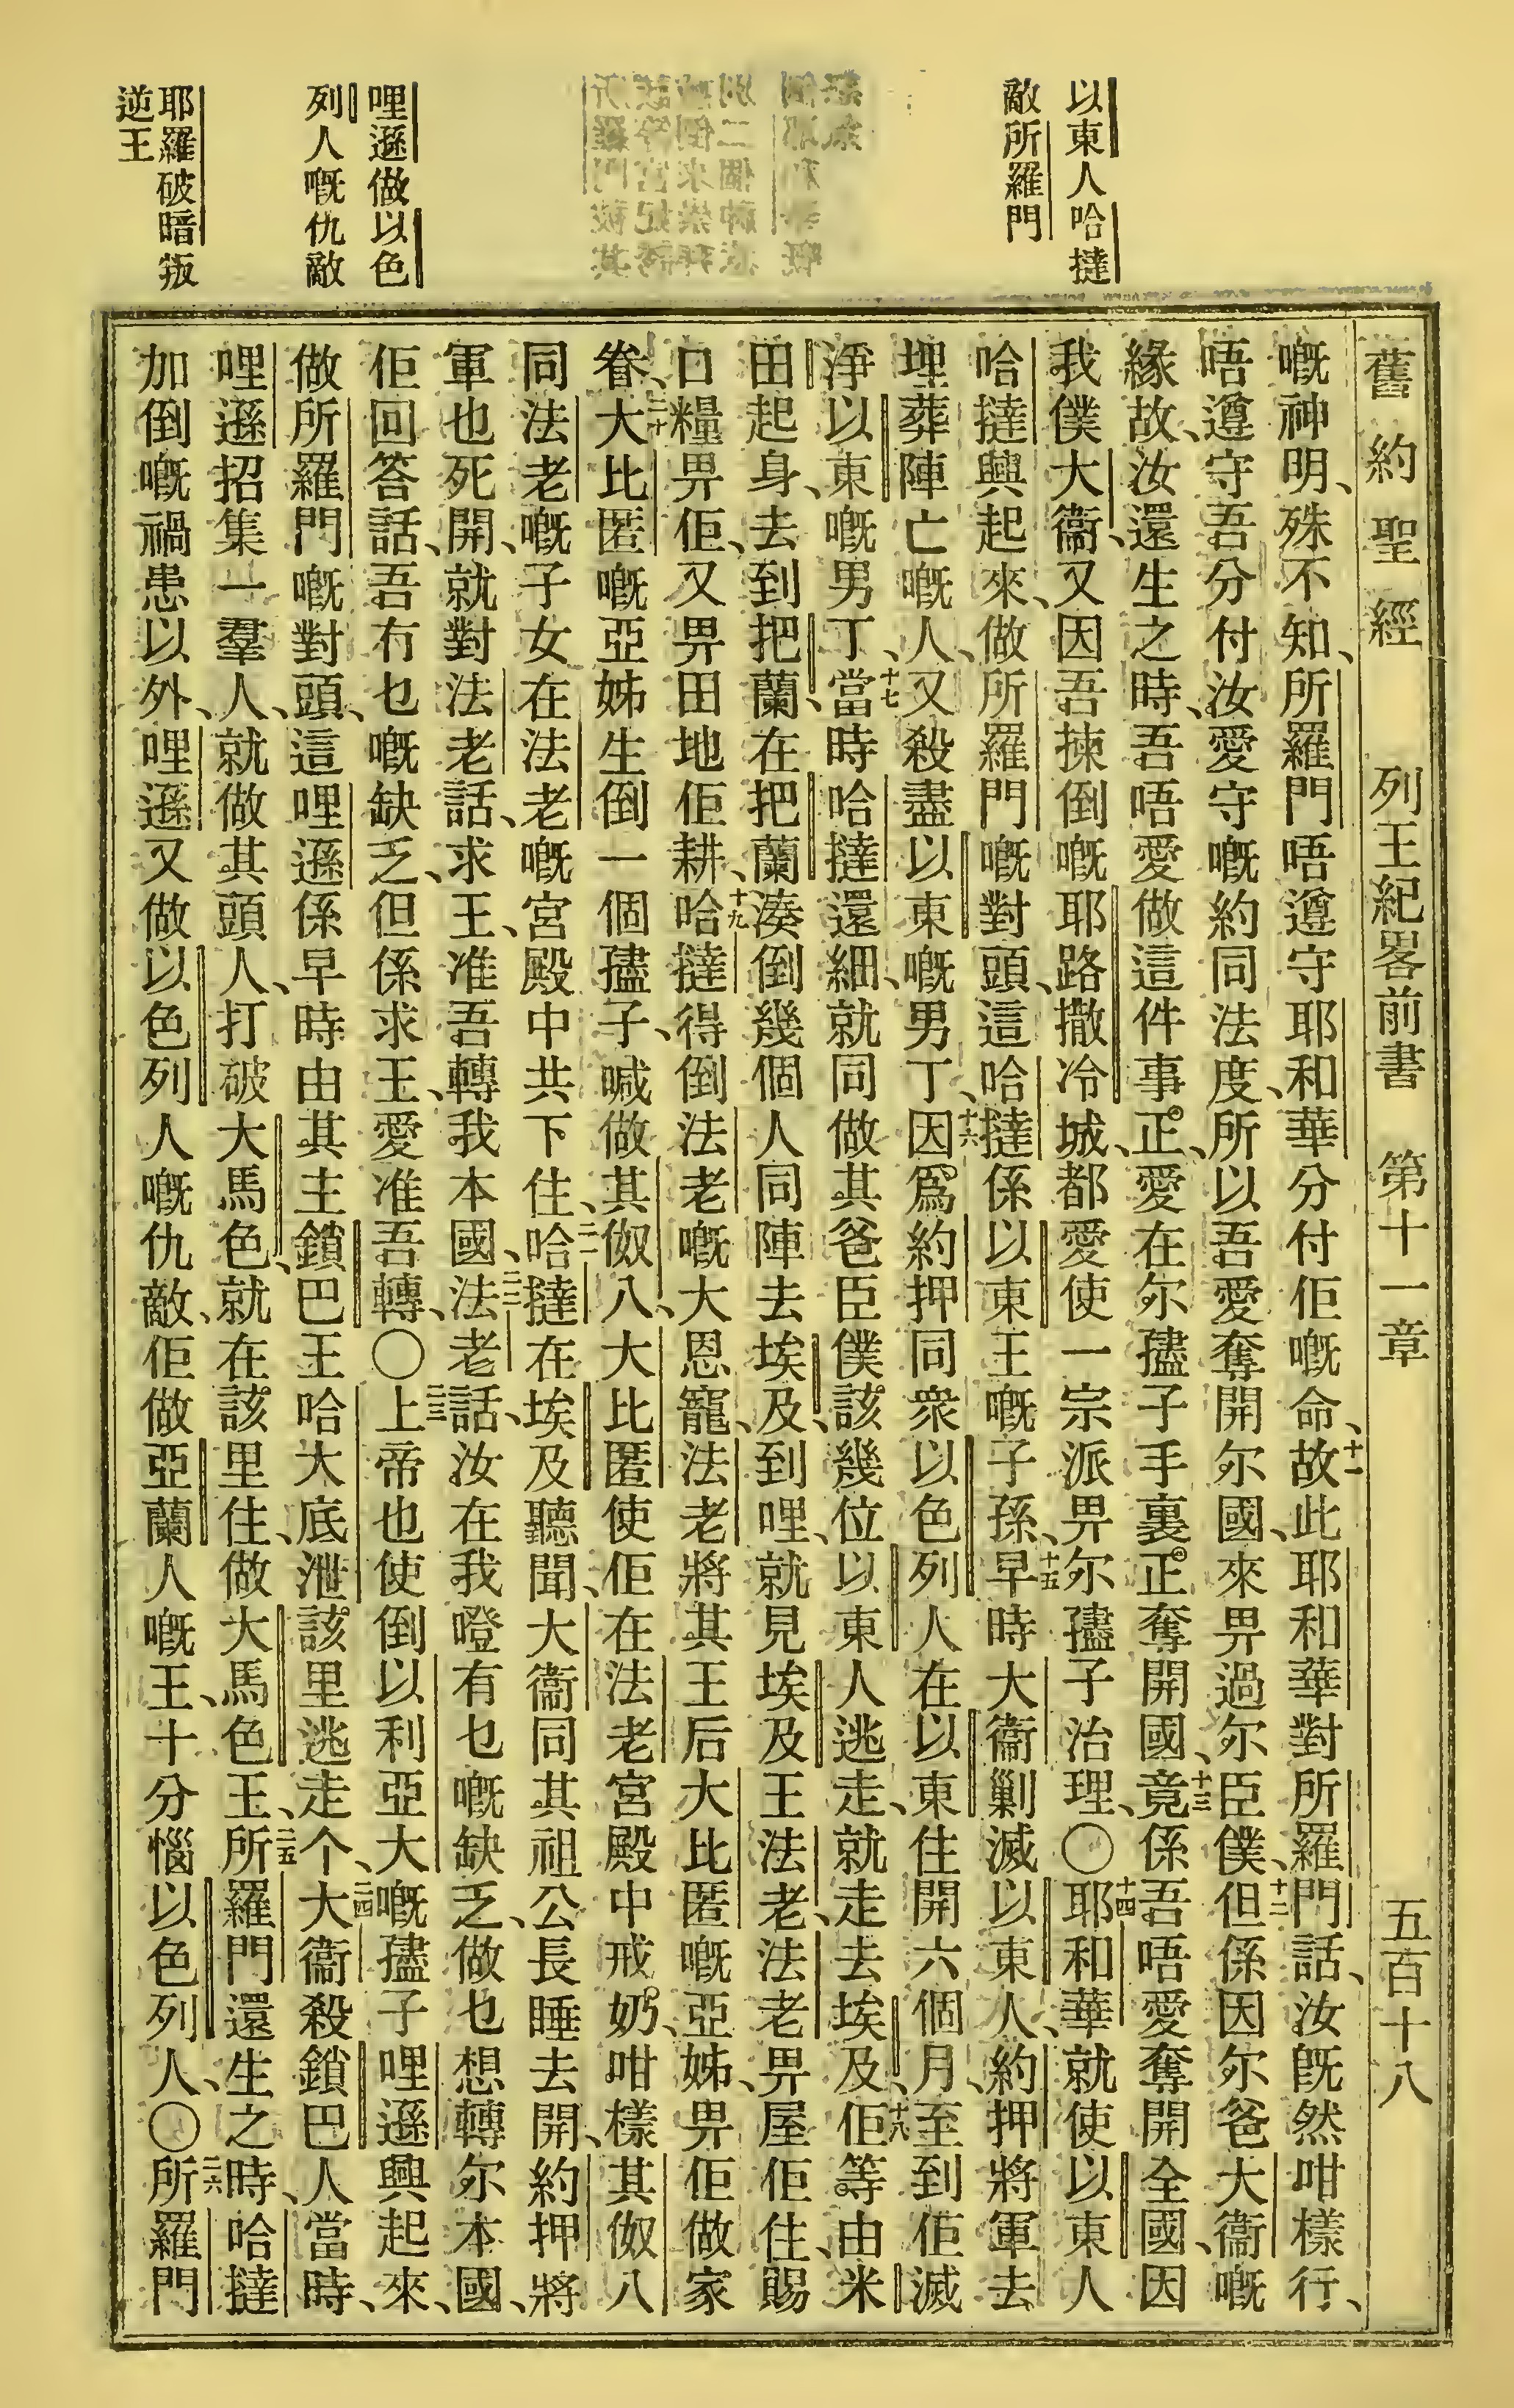 舊約聖經　列王紀畧前書　第十一章　五百十八
以東人哈撻
敵所羅門
哩遜做以色
列人嘅仇敵
耶羅破暗叛
逆王
嘅神明、殊不知、所羅門唔遵守耶和華分付佢嘅命、十一故此耶和華對所羅門話、汝旣然咁樣行、
唔遵守吾分付汝愛守嘅約同法度、所以吾愛奪開尔國、來畀過尔臣僕、十二但係因尔爸大衞嘅
緣故、汝還生之時、吾唔愛做這件事、正愛在尔孻子手裏正奪開國、十三竟係吾唔愛奪開全國、因
我僕大衞、又因吾揀倒嘅耶路撒冷城、都愛使一宗派畀尔孻子治理、〇十四耶和華就使以東人
哈撻興起來、做所羅門嘅對頭、這哈撻係以東王嘅子孫、十五早時大衞剿滅以東人、約押將軍去
埋葬陣亡嘅人、又殺盡以東嘅男丁、十六因爲約押同衆以色列人在以東住開六個月、至到佢滅
淨以東嘅男丁、十七當時哈撻還細、就同做其爸臣僕該幾位以東人逃走、就走去埃及、十八佢等由米
田起身、去到把蘭、在把蘭湊倒幾個人同陣去埃及、到哩、就見埃及王法老、法老畀屋佢住、賜
口糧畀佢、又畀田地佢耕、十九哈撻得倒法老嘅大恩寵、法老將其王后大比匿嘅亞姊、畀佢做家
眷、二十大比匿嘅亞姊生倒一個孻子、喊做其伮八、大比匿使佢在法老宮殿中戒奶、咁樣其伮八
同法老嘅子女在法老嘅宮殿中共下住、二一哈撻在埃及聽聞、大衞同其祖公長睡去開、約押將
軍也死開、就對法老話、求王准吾轉我本國、二二法老話、汝在我嶝有乜嘅缺乏、做乜想轉尔本國、
佢回答話、吾冇乜嘅缺乏、但係求王、愛准吾轉、〇二三上帝也使倒以利亞大嘅孻子哩遜興起來、
做所羅門嘅對頭、這哩遜係早時由其主鎖巴王哈大底泄該里逃走个、二四大衞殺鎖巴人當時、
哩遜招集一羣人、就做其頭人、打破大馬色、就在該里住、做大馬色王、二五所羅門還生之時、哈撻
加倒嘅禍患以外、哩遜又做以色列人嘅仇敵、佢做亞蘭人嘅王、十分惱以色列人、〇二六所羅門